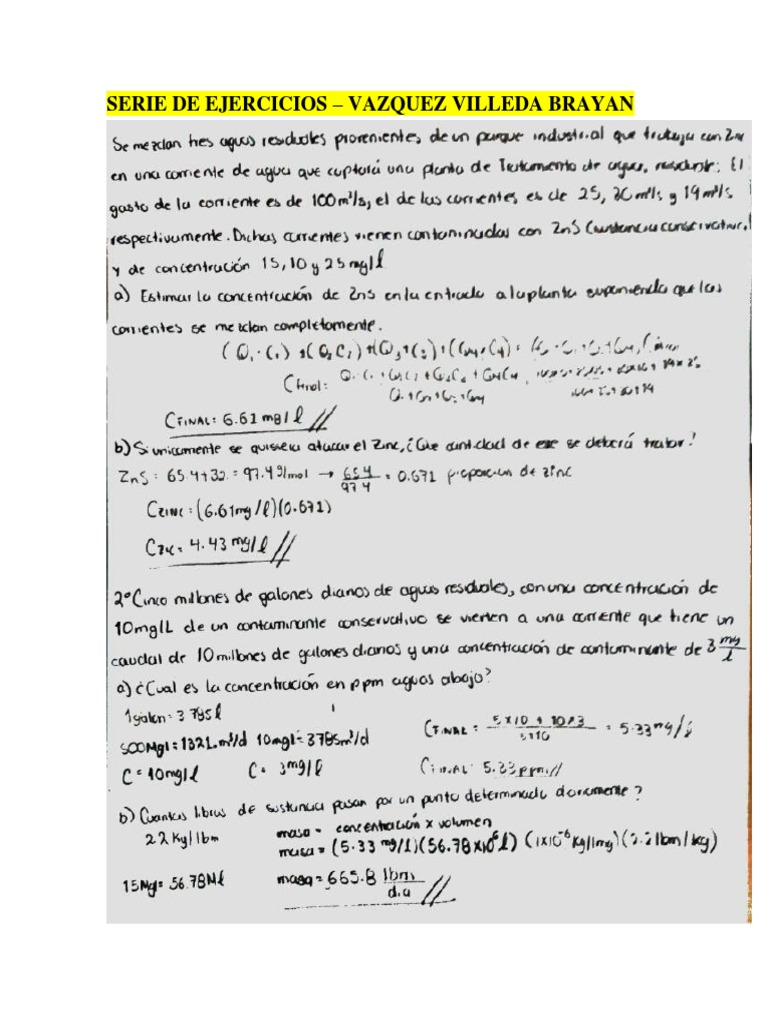 SERIE DE EJERCICIOS – VAZQUEZ VILLEDA BRAYAN
Se mezclan tres aguas residuales provenientes de un parque industrial que trabaja con Zinc
en una corriente de agua que captará una planta de Tratamiento de agua residual: El
gasto de la corriente es de 100m³/s, el de las corrientes es de 25, 20 m³/s y 19m³/s
respectivamente. Dichas corrientes vienen contaminadas con ZnS (sustancia conservativa)
y de concentración 15, 10 y 25 mg/l
a) Estimar la concentración de ZnS en la entrada a la planta suponiendo que las
corrientes se mezclan completamente.
C FINAL: 6.61 mg/l
b) Si unicamente se quisiera atacar el Zinc, ¿Que cantidad de ese se deberá tratar?
ZnS = 65.4+32 = 97.4 g/mol → 65.4/97.4 = 0.671 proporcion de zinc
CZINC = (6.61mg/l)(0.671)
= 4.43 mg/l
2° Cinco millones de galones diarios de aguas residuales, con una concentración de
10mg/L de un contaminante conservativo se vierten a una corriente que tiene un
caudal de 10 millones de galones diarios y una concentración de contaminante de 3 mg/l
a) ¿Cual es la concentración en ppm aguas abajo?
1galon = 3.785l
C = 10mg/l C = 3mg/l
CFINAL = = 5.33 mg/l
CFINAL: 5.33ppm
b) Cuantas libras de sustancia pasan por un punto determinado diariamente?
2.2 Kg/lbm
masa = concentración x volumen
masa = (5.33 mg/l)(56.78x10⁶l) (1x10⁻⁶ Kg/1mg)(2.2 lbm/kg)
15Mgl = 56.78Ml
masa = 665.8 lbm/dia